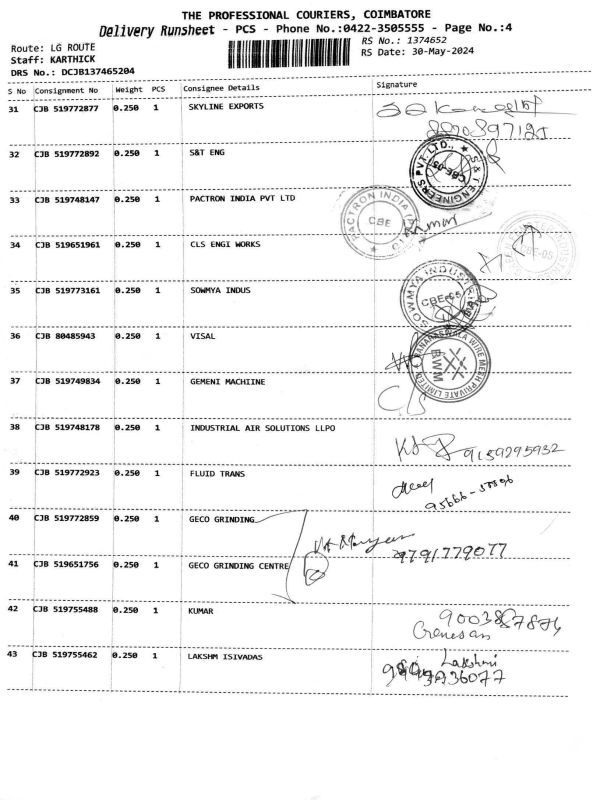 THE PROFESSIONAL COURIERS, COIMBATORE
Delivery Runsheet - PCS - Phone No.:0422-3505555 - Page No.:4
Route: LG ROUTE
RS No.: 1374652
Staff: KARTHICK
RS Date: 30-May-2024
DRS No.: DCJB137465204
S No Consignment No Weight PCS Consignee Details Signature
31 CJB 519772877 0.250 1 SKYLINE EXPORTS
32 CJB 519772892 0.250 1 S&T ENG
S&T ENGINEERS PVT. LTD., CBE-05
33 CJB 519748147 0.250 1 PACTRON INDIA PVT LTD
PACTRON INDIA CBE
Kumar
34 CJB 519651961 0.250 1 CLS ENGI WORKS
CBE-05
35 CJB 519773161 0.250 1 SOWMYA INDUS
SOWMYA INDUSTRIES CBE-05
36 CJB 80485943 0.250 1 VISAL
BANARASWALA WIRE MESH PRIVATE LIMITED BWM
37 CJB 519749834 0.250 1 GEMENI MACHIINE
38 CJB 519748178 0.250 1 INDUSTRIAL AIR SOLUTIONS LLPO
9159295932
39 CJB 519772923 0.250 1 FLUID TRANS
40 CJB 519772859 0.250 1 GECO GRINDING
9791779077
41 CJB 519651756 0.250 1 GECO GRINDING CENTRE
42 CJB 519755488 0.250 1 KUMAR
Ganesan
43 CJB 519755462 0.250 1 LAKSHM ISIVADAS
Lakshmi